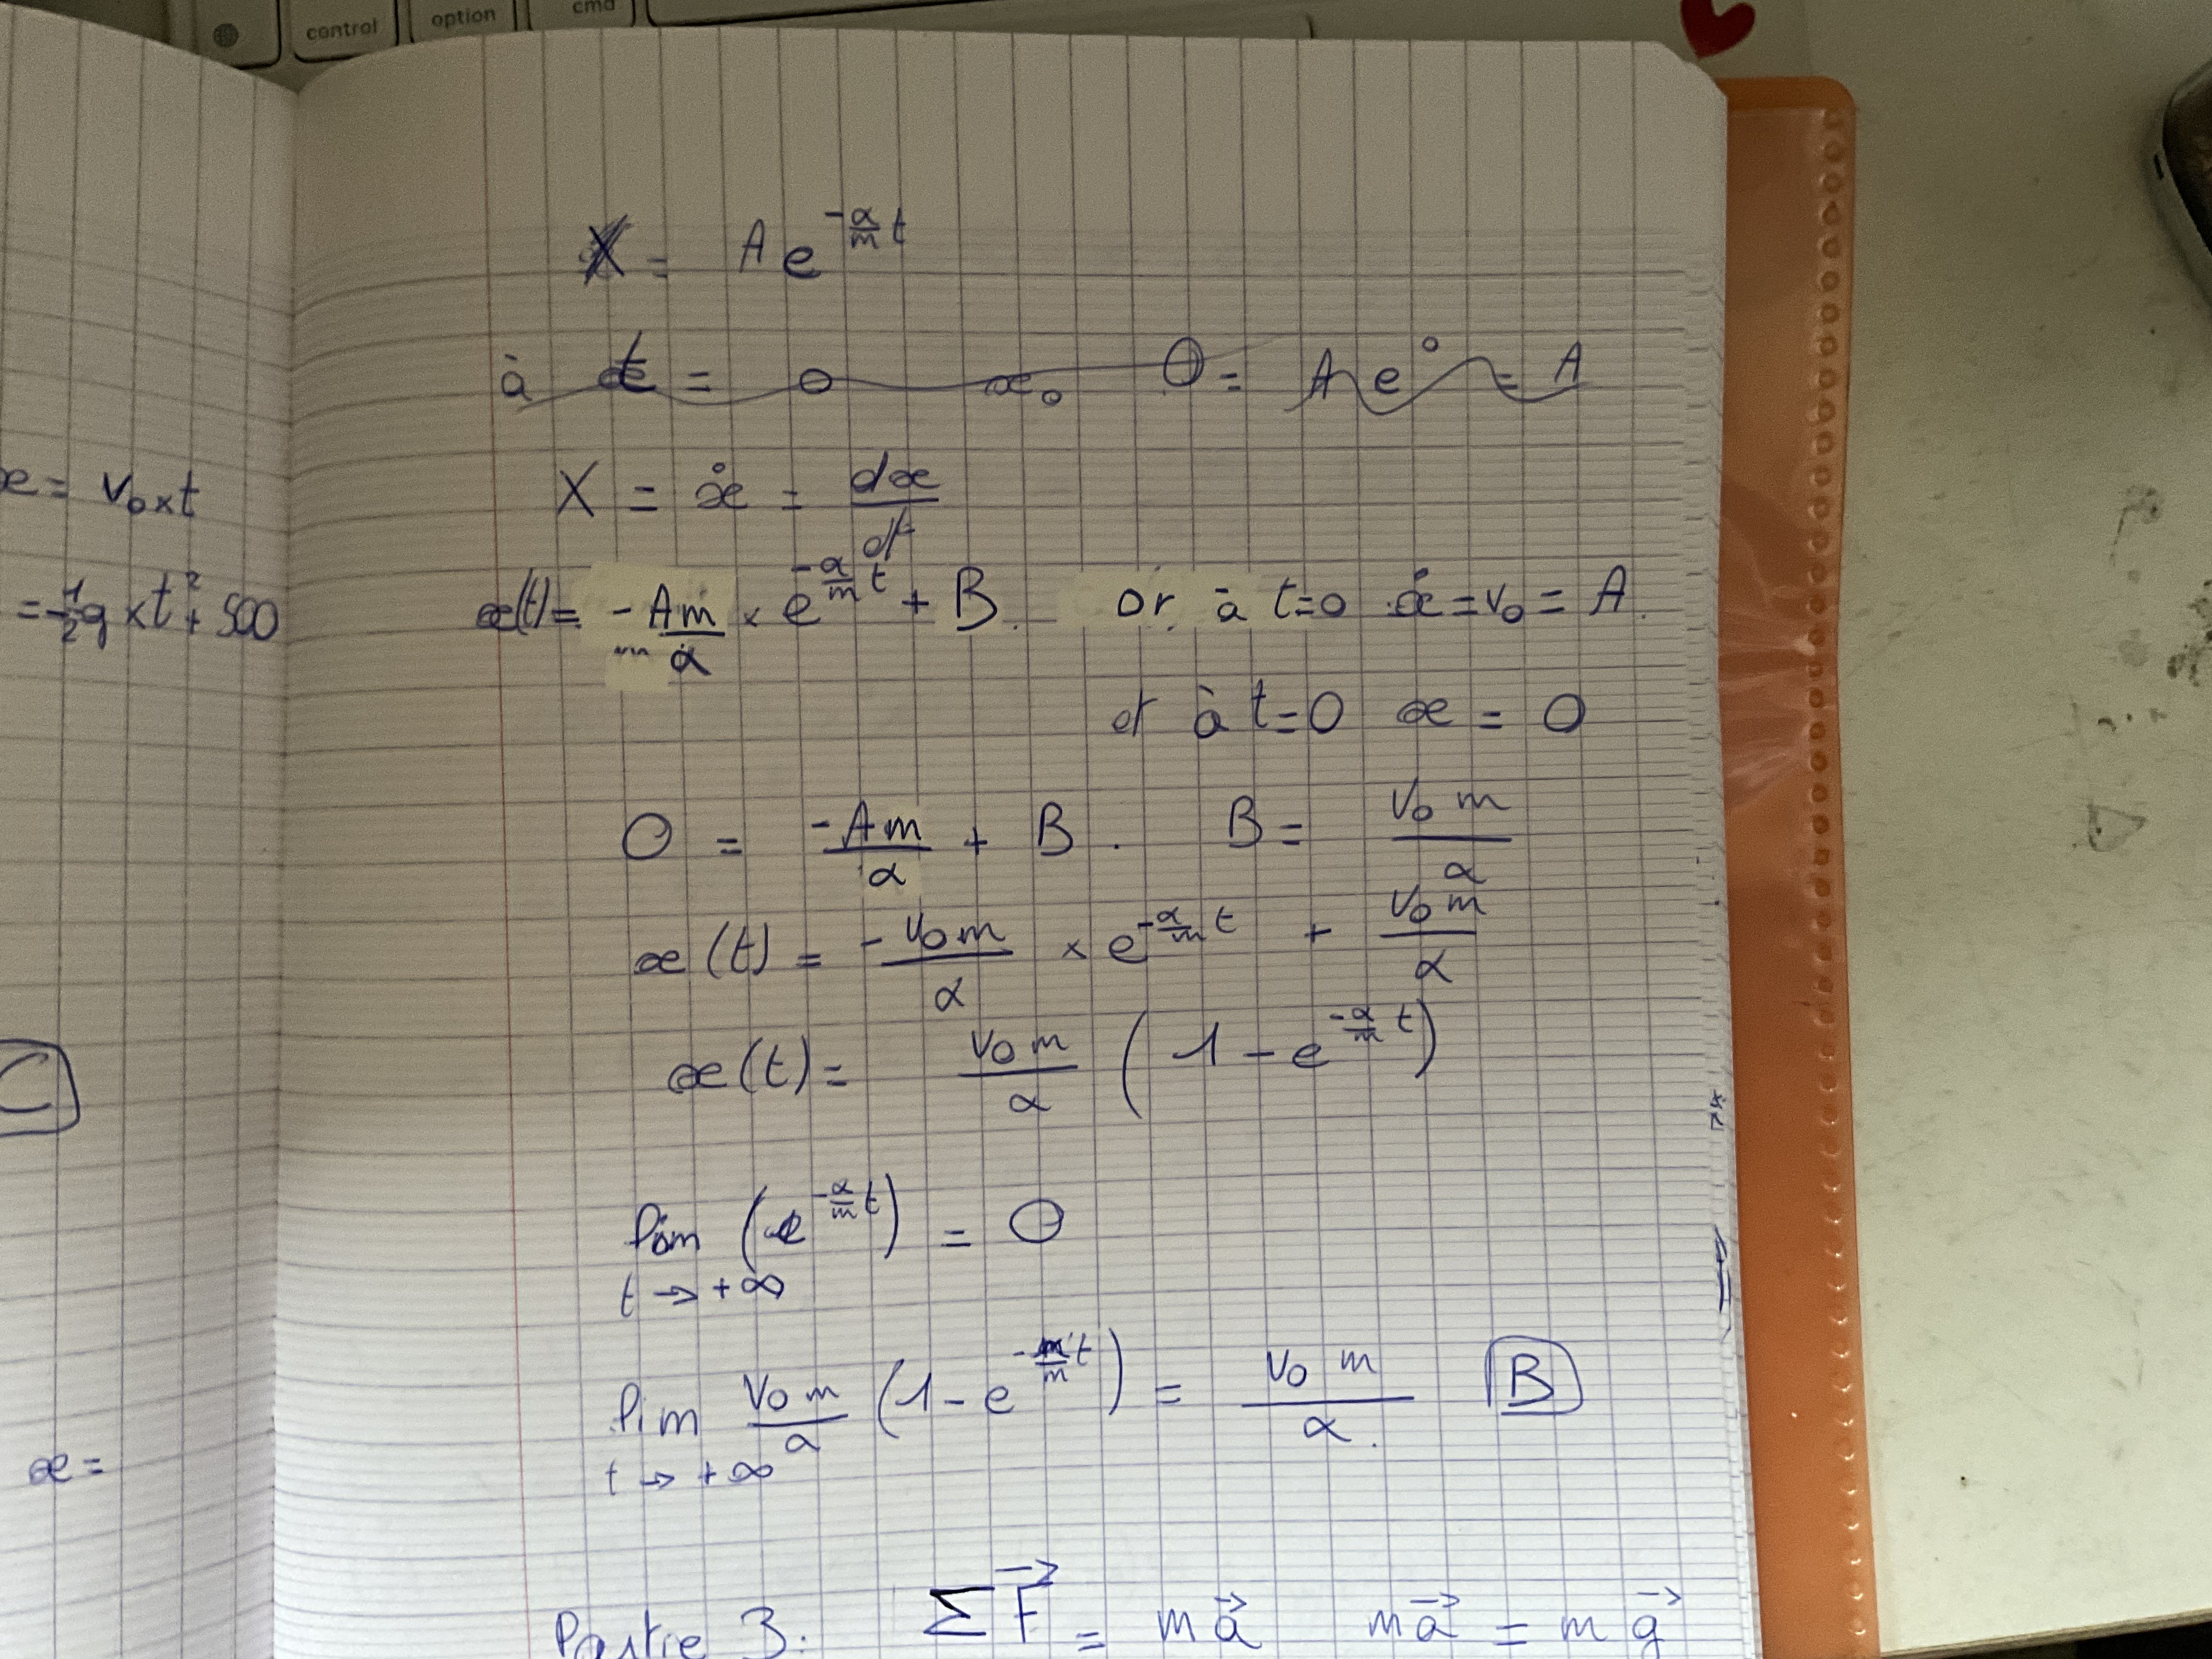 control option cmd
X = A e^{-α/m t}
à t = 0 x₀ 0 = A e⁰ = A
x = v₀ x t
X = ẋ = dx/dt
= -1/2 g x t² + 500
x(t) = -Am/α × e^{-α/m t} + B. or à t=0 ẋ = v₀ = A.
et à t=0 x = 0
0 = -Am/α + B. B = v₀ m/α
x(t) = -v₀ m/α × e^{-α/m t} + v₀ m/α
C
x(t) = v₀ m/α (1 - e^{-α/m t})
lim t → +∞ (e^{-α/m t}) = 0
x =
lim t → +∞ v₀ m/α (1 - e^{-α/m t}) = v₀ m/α. B
Partie 3: ΣF⃗ = ma⃗ ma⃗ = mg⃗